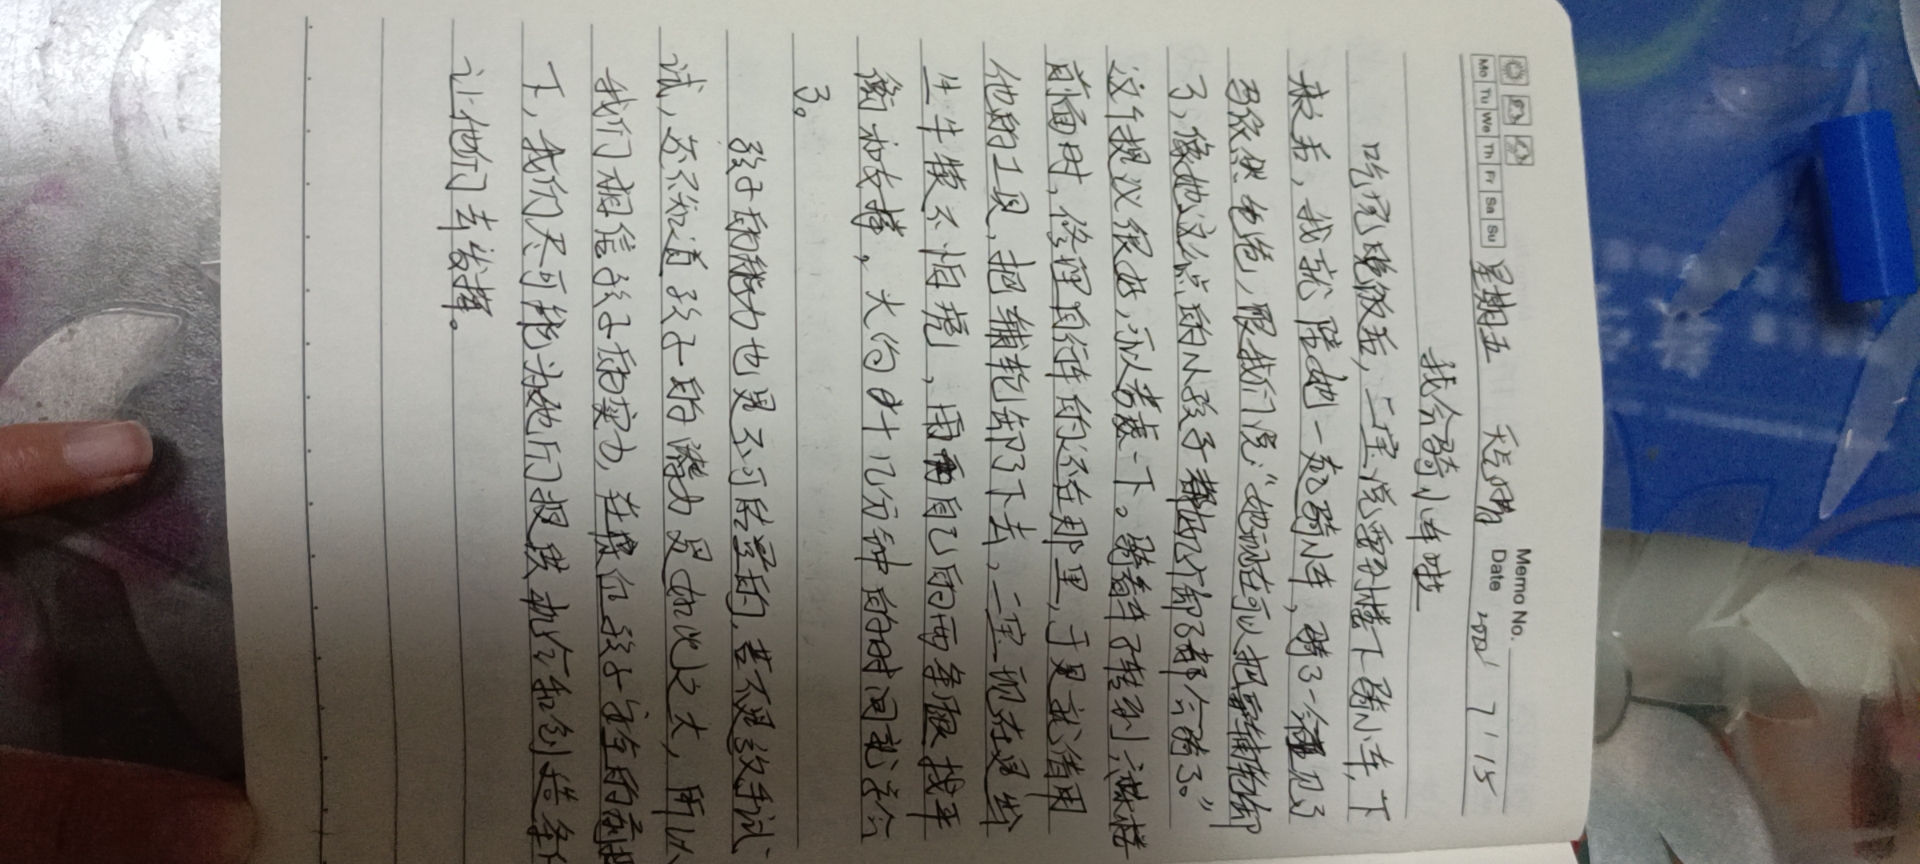 Memo No.
Mo Tu We Th Fr Sa Su 星期五 天气晴 Date 2022 7 / 15
我会骑小车啦
吃完晚饭后，二宝说要到楼下骑小车，下
来之后，我就陪她一起骑小车，骑了一会遇见了
我们说：“她现在可以把辅轮卸
了，像她这么点的小孩子都把它卸了都会骑了。”
这个提议很好，可以考虑一下。骑着车子转到楼
前面时，修理自行车的还在那里，于是就借用
他的工具，把辅轮卸了下去，二宝现在是给
生牛犊不怕虎，用自己的两条腿找平
衡和支撑。大约十几分钟的时间就学会
了。
孩子的能力也是不可估量的，若不是放手试
试，还不知道孩子的潜力是如此之大，所以
我们相信孩子的实力，在保证孩子安全的前提
下，我们尽可能为她们提供机会和创造条
让他们去发挥。